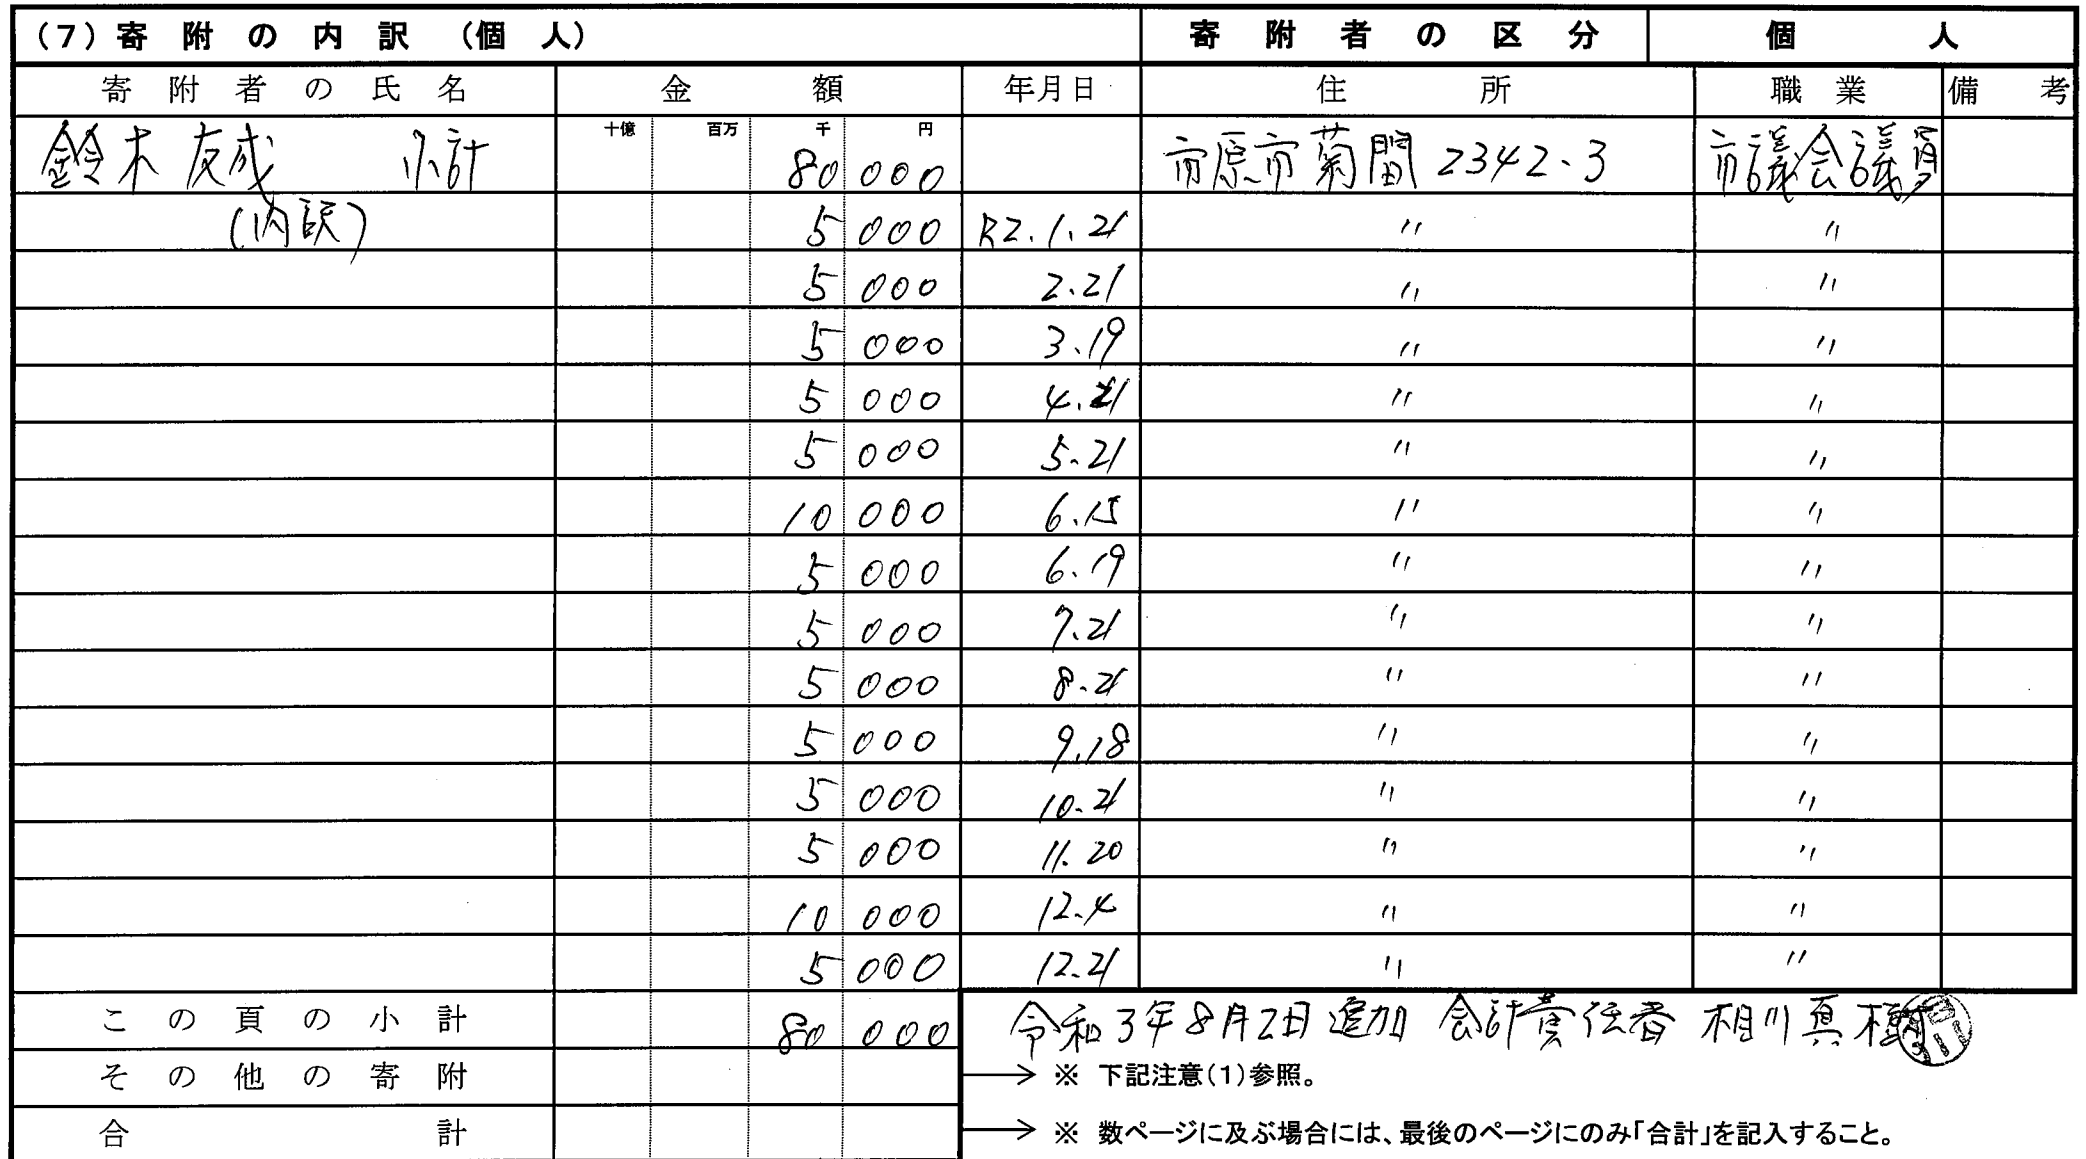 (7)寄附の内訳(個人) 寄附者の区分 個人
寄附者の氏名 金額 年月日 住所 職業 備考
十億 百万 千 円
鈴木友成 小計 80 000 市原市菊間2342-3 市議会議員
(内訳) 5 000 R2.1.21 〃 〃
5 000 2.21 〃 〃
5 000 3.19 〃 〃
5 000 4.21 〃 〃
5 000 5.21 〃 〃
10 000 6.15 〃 〃
5 000 6.19 〃 〃
5 000 7.21 〃 〃
5 000 8.21 〃 〃
5 000 9.18 〃 〃
5 000 10.21 〃 〃
5 000 11.20 〃 〃
10 000 12.4 〃 〃
5 000 12.21 〃 〃
この頁の小計 80 000 令和3年8月2日追加 会計責任者 相川真樹
その他の寄附 → ※ 下記注意(1)参照。
合計 → ※ 数ページに及ぶ場合には、最後のページにのみ「合計」を記入すること。